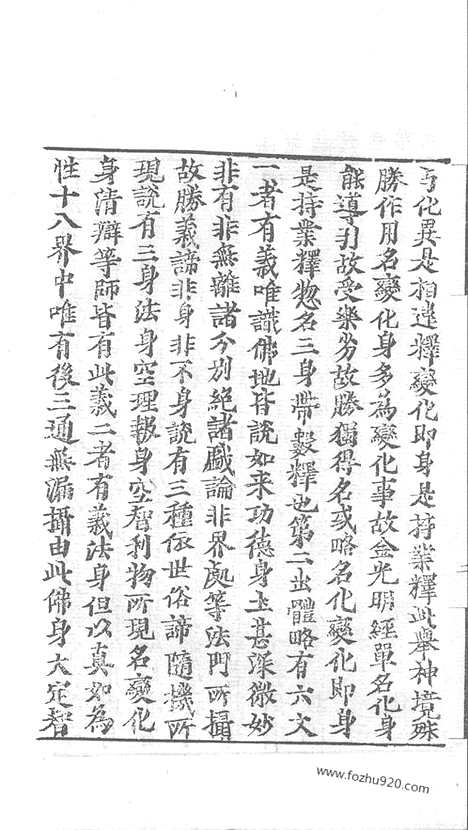 與化異是相違釋變化即身是持業釋此舉神境殊
勝作用名變化身多為變化事故金光明經單名化身
能導引故受樂劣故勝獨得名或略名化變化即身
是持業釋惣名三身帶數釋也第二出體略有六文
一者有義唯識佛地皆說如来功德身土甚深微妙
非有非無離諸分別絕諸戲論非界處等法門所攝
故勝義諦非身非不身說有三種依世俗諦隨機所
現說有三身法身空理報身空智利物所現名變化
身清辯等師皆有此義二者有義法身但以真如為
性十八界中唯有後三通無漏攝由此佛身大定智
www.fozhu920.com